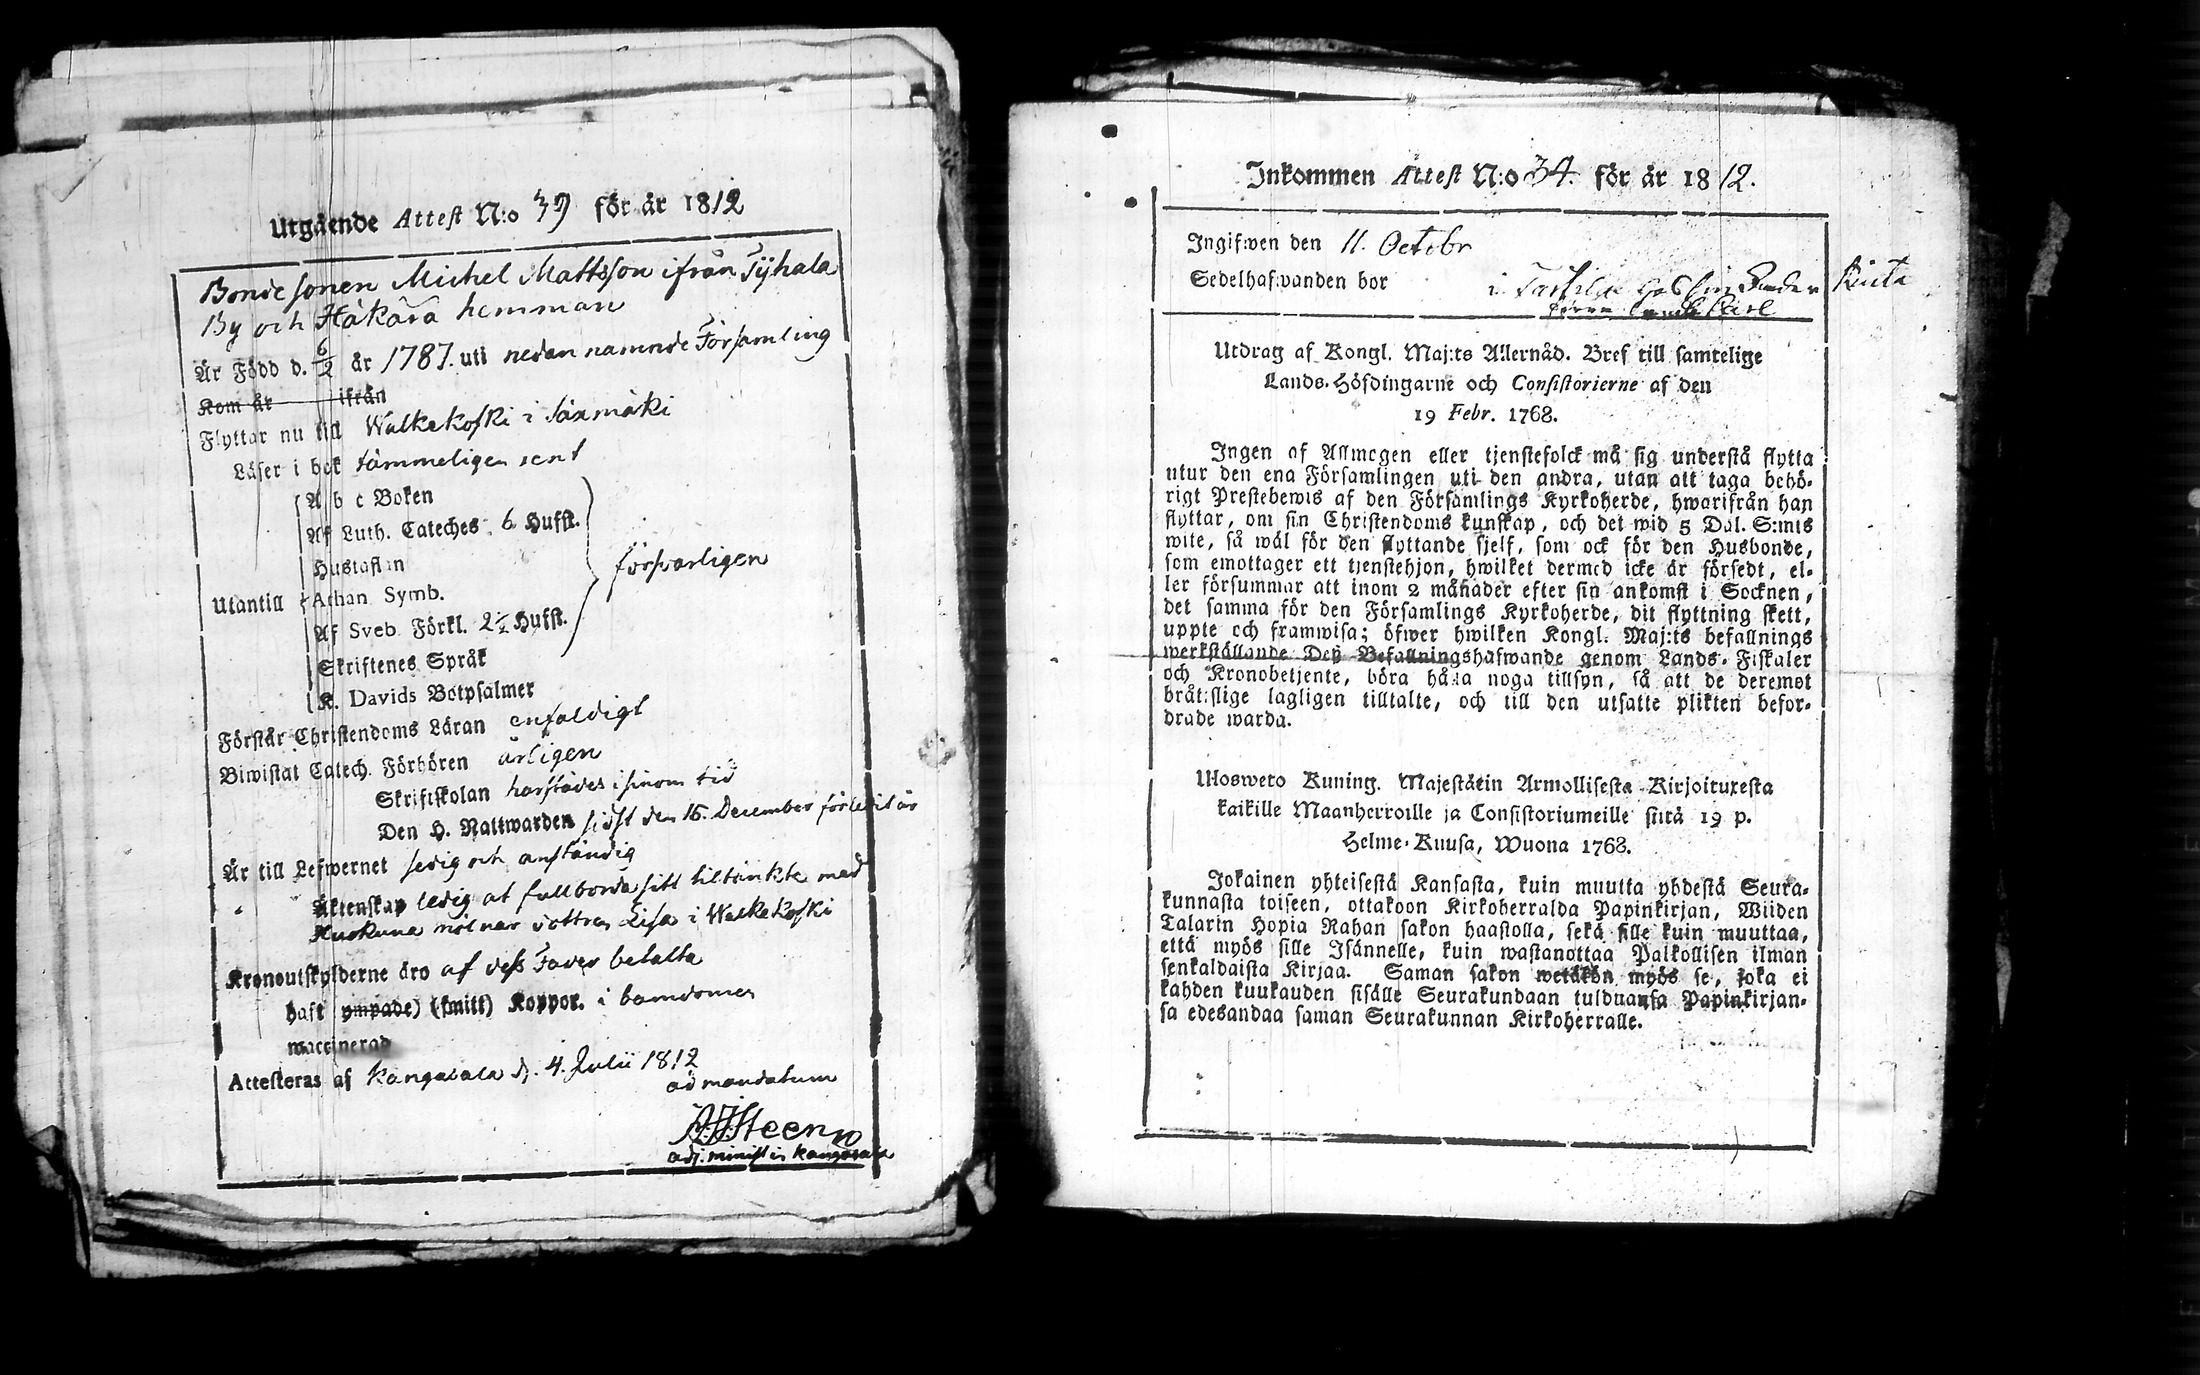 Utgående Attest N:o 39 för år 1812
Bondesonen Michel Mattsson ifrån Tÿhala
By och Håkåra hemman
Är Född d. 6/2 år 1787. uti nedan namnde Församling
Kom år ifrån
Flyttar nu till Walkekoski i Säxmäki
Läser i bok tämmeligen rent
A b c Boken
Af Luth. Cateches. 6 Hufst.
Hustaflan
Utantill Athan Symb. försvarligen
Af Sveb. Förkl. 2½ Hufst.
Skriftenes Språk
K. Davids Botpsalmer
Förstår Christendoms Läran enfaldigt
Biwistat Catech. Förhören årligen
Skriftskolan härstädes i sinom tid
Den H. Nattwarden sidst den 16. December förledit år
Är till Lefwernet sedig och anständig
Äktenskap ledig at fullborda sitt tiltänkte med
mölnar dottren Lisa i Walkekoski
Kronoutskylderne äro af dess Fader betalta
haft ympade) (smitt) Koppor. i barndomen
waccinerad
Attesteras af Kangasala d. 4. Julii 1812
ad mandatum
adj. minist. in Kangasala
Inkommen Attest N:o 34. för år 1812.
Ingifwen den 11. Octobr
Sedelhafwanden bor i
Utdrag af Kongl. Maj:ts Allernåd. Bref till samtelige
Lands-Höfdingarne och Consistorierne af den
19 Febr. 1768.
Ingen af Allmogen eller tjenstefolck må sig understå flytta
utur den ena Församlingen uti den andra, utan att taga behö-
rigt Prestebewis af den Församlings Kyrkoherde, hwarifrån han
flyttar, om sin Christendoms kunskap, och det wid 5 Dal. S:mts
wite, så wäl för den flyttande sjelf, som ock för den Husbonde,
som emottager ett tjenstehjon, hwilket dermed icke är försedt, el-
ler försummar att inom 2 månader efter sin ankomst i Socknen,
det samma för den Församlings Kyrkoherde, dit flyttning skett,
uppte och framwisa; öfwer hwilken Kongl. Maj:ts befallnings
werkställande Deß Befallningshafwande genom Lands-Fiskaler
och Kronobetjente, böra hålla noga tillsyn, så att de deremot
bråtslige lagligen tilltalte, och till den utsatte plikten befor-
drade warda.
Ulosweto Kuning. Majestätin Armollisesta Kirjoituxesta
kaikille Maanherroille ja Consistoriumeille siitä 19 p.
Helme-Kuusa, Wuona 1768.
Jokainen yhteisestä Kansasta, kuin muutta yhdestä Seura-
kunnasta toiseen, ottakoon Kirkoherralda Papinkirjan, Wiiden
Talarin Hopia Rahan sakon haastolla, sekä sille kuin muuttaa,
että myös sille Isännelle, kuin wastanottaa Palkollisen ilman
senkaldaista Kirjaa. Saman sakon wetäkön myös se, joka ei
kahden kuukauden sisälle Seurakundaan tulduansa Papinkirjan-
sa edesandaa saman Seurakunnan Kirkoherralle.